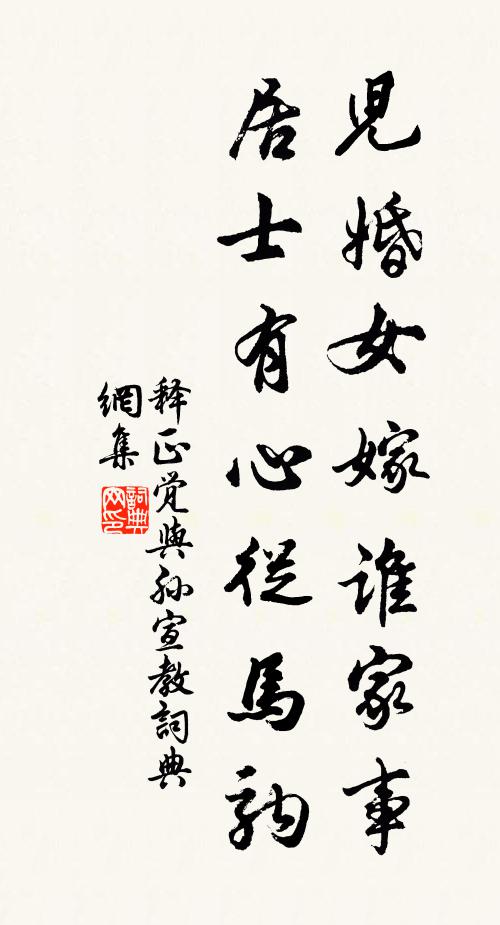 兒婚女嫁誰家事
居士有心從馬駒
释正觉與孙宣教詞典
網集
詞典
网印